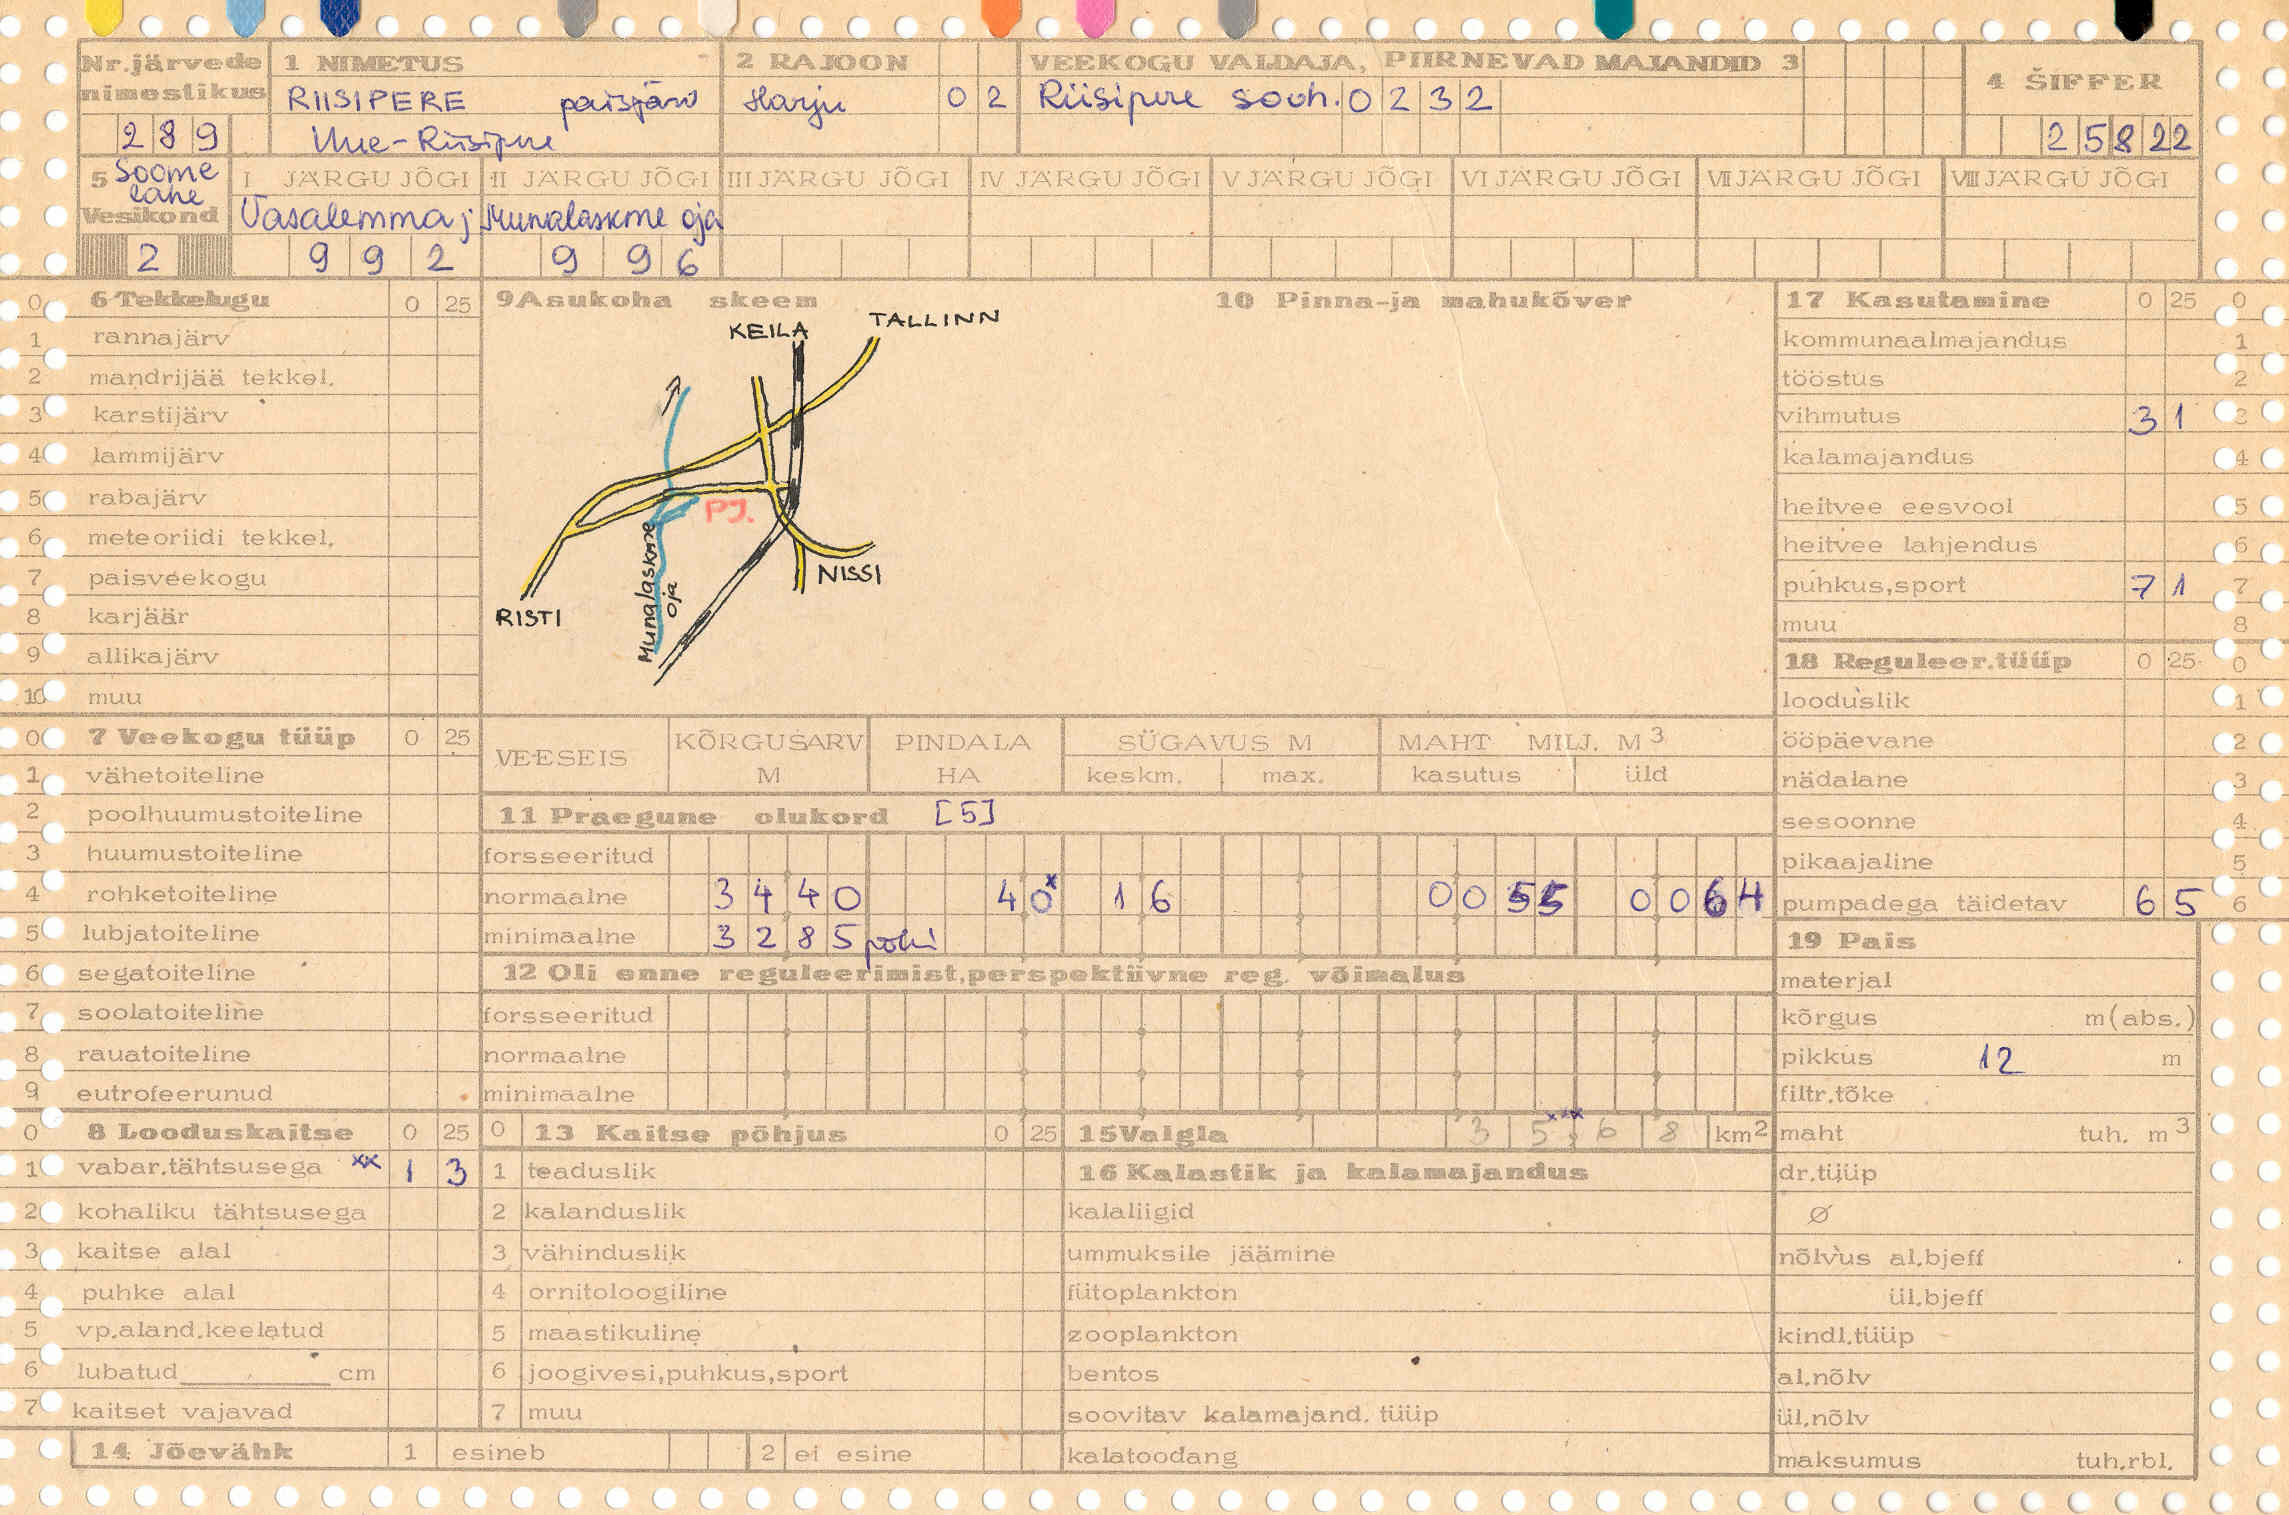 Nr.järvede nimestikus 1 NIMETUS 2 RAJOON VEEKOGU VALDAJA, PIIRNEVAD MAJANDID 3 4 ŠIFFER
RIISIPERE paisjärv Harju 0 2 Riisipere sovh. 0 2 3 2
2 8 9 Uue-Riisipere 2 5 8 2 2
5 Soome lahe Vesikond I JÄRGU JÕGI II JÄRGU JÕGI III JÄRGU JÕGI IV JÄRGU JÕGI V JÄRGU JÕGI VI JÄRGU JÕGI VII JÄRGU JÕGI VIII JÄRGU JÕGI
Vasalemma j Munalaskme oja
2 9 9 2 9 9 6
0 6 Tekkelugu 0 25
1 rannajärv
2 mandrijää tekkel.
3 karstijärv
4 lammijärv
5 rabajärv
6 meteoriidi tekkel.
7 paisveekogu
8 karjäär
9 allikajärv
10 muu
0 7 Veekogu tüüp 0 25
1 vähetoiteline
2 poolhuumustoiteline
3 huumustoiteline
4 rohketoiteline
5 lubjatoiteline
6 segatoiteline
7 soolatoiteline
8 rauatoiteline
9 eutrofeerunud
0 8 Looduskaitse 0 25
1 vabar.tähtsusega xx 1 3
2 kohaliku tähtsusega
3 kaitse alal
4 puhke alal
5 vp.aland.keelatud
6 lubatud cm
7 kaitset vajavad
9 Asukoha skeem 10 Pinna-ja mahukõver
KEILA TALLINN
PJ.
Munalaskme oja
NISSI
RISTI
VEESEIS KÕRGUSARV M PINDALA HA SÜGAVUS M MAHT MILJ. M3
keskm. max. kasutus üld
11 Praegune olukord [5]
forsseeritud
normaalne 3 4 4 0 4 0x 1 6 0 0 5 5 0 0 6 4
minimaalne 3 2 8 5 põhi
12 Oli enne reguleerimist,perspektiivne reg. võimalus
forsseeritud
normaalne
minimaalne
0 13 Kaitse põhjus 0 25
1 teaduslik
2 kalanduslik
3 vähinduslik
4 ornitoloogiline
5 maastikuline
6 joogivesi,puhkus,sport
7 muu
14 Jõevähk 1 esineb 2 ei esine
15 Valgla 3 5, 6 8 xxx km2
16 Kalastik ja kalamajandus
kalaliigid
ummuksile jäämine
fütoplankton
zooplankton
bentos
soovitav kalamajand. tüüp
kalatoodang
17 Kasutamine 0 25 0
kommunaalmajandus 1
tööstus 2
vihmutus 3 1 3
kalamajandus 4
heitvee eesvool 5
heitvee lahjendus 6
puhkus,sport 7 1 7
muu 8
18 Reguleer.tüüp 0 25 0
looduslik 1
ööpäevane 2
nädalane 3
sesoonne 4
pikaajaline 5
pumpadega täidetav 6 5 6
19 Pais
materjal
kõrgus m(abs.)
pikkus 12 m
filtr.tõke
maht tuh. m3
dr.tüüp
Ø
nõlvus al.bjeff
ül.bjeff
kindl.tüüp
al.nõlv
ül.nõlv
maksumus tuh.rbl.